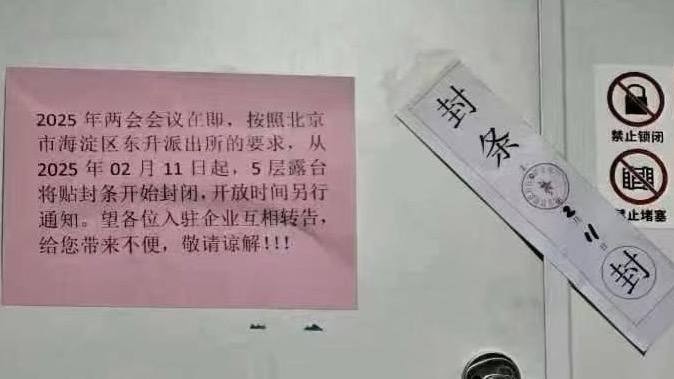 2025年两会会议在即，按照北京
市海淀区东升派出所的要求，从
2025年02月11日起，5层露台
将贴封条开始封闭，开放时间另行
通知。望各位入驻企业互相转告，
给您带来不便，敬请谅解!!!
封条
2月11日
封
禁止锁闭
禁止堵塞